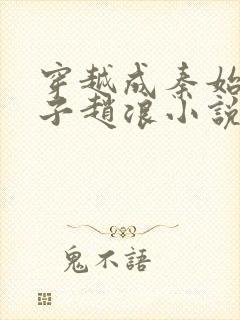 穿越成秦始
子趙浪小說
鬼不語